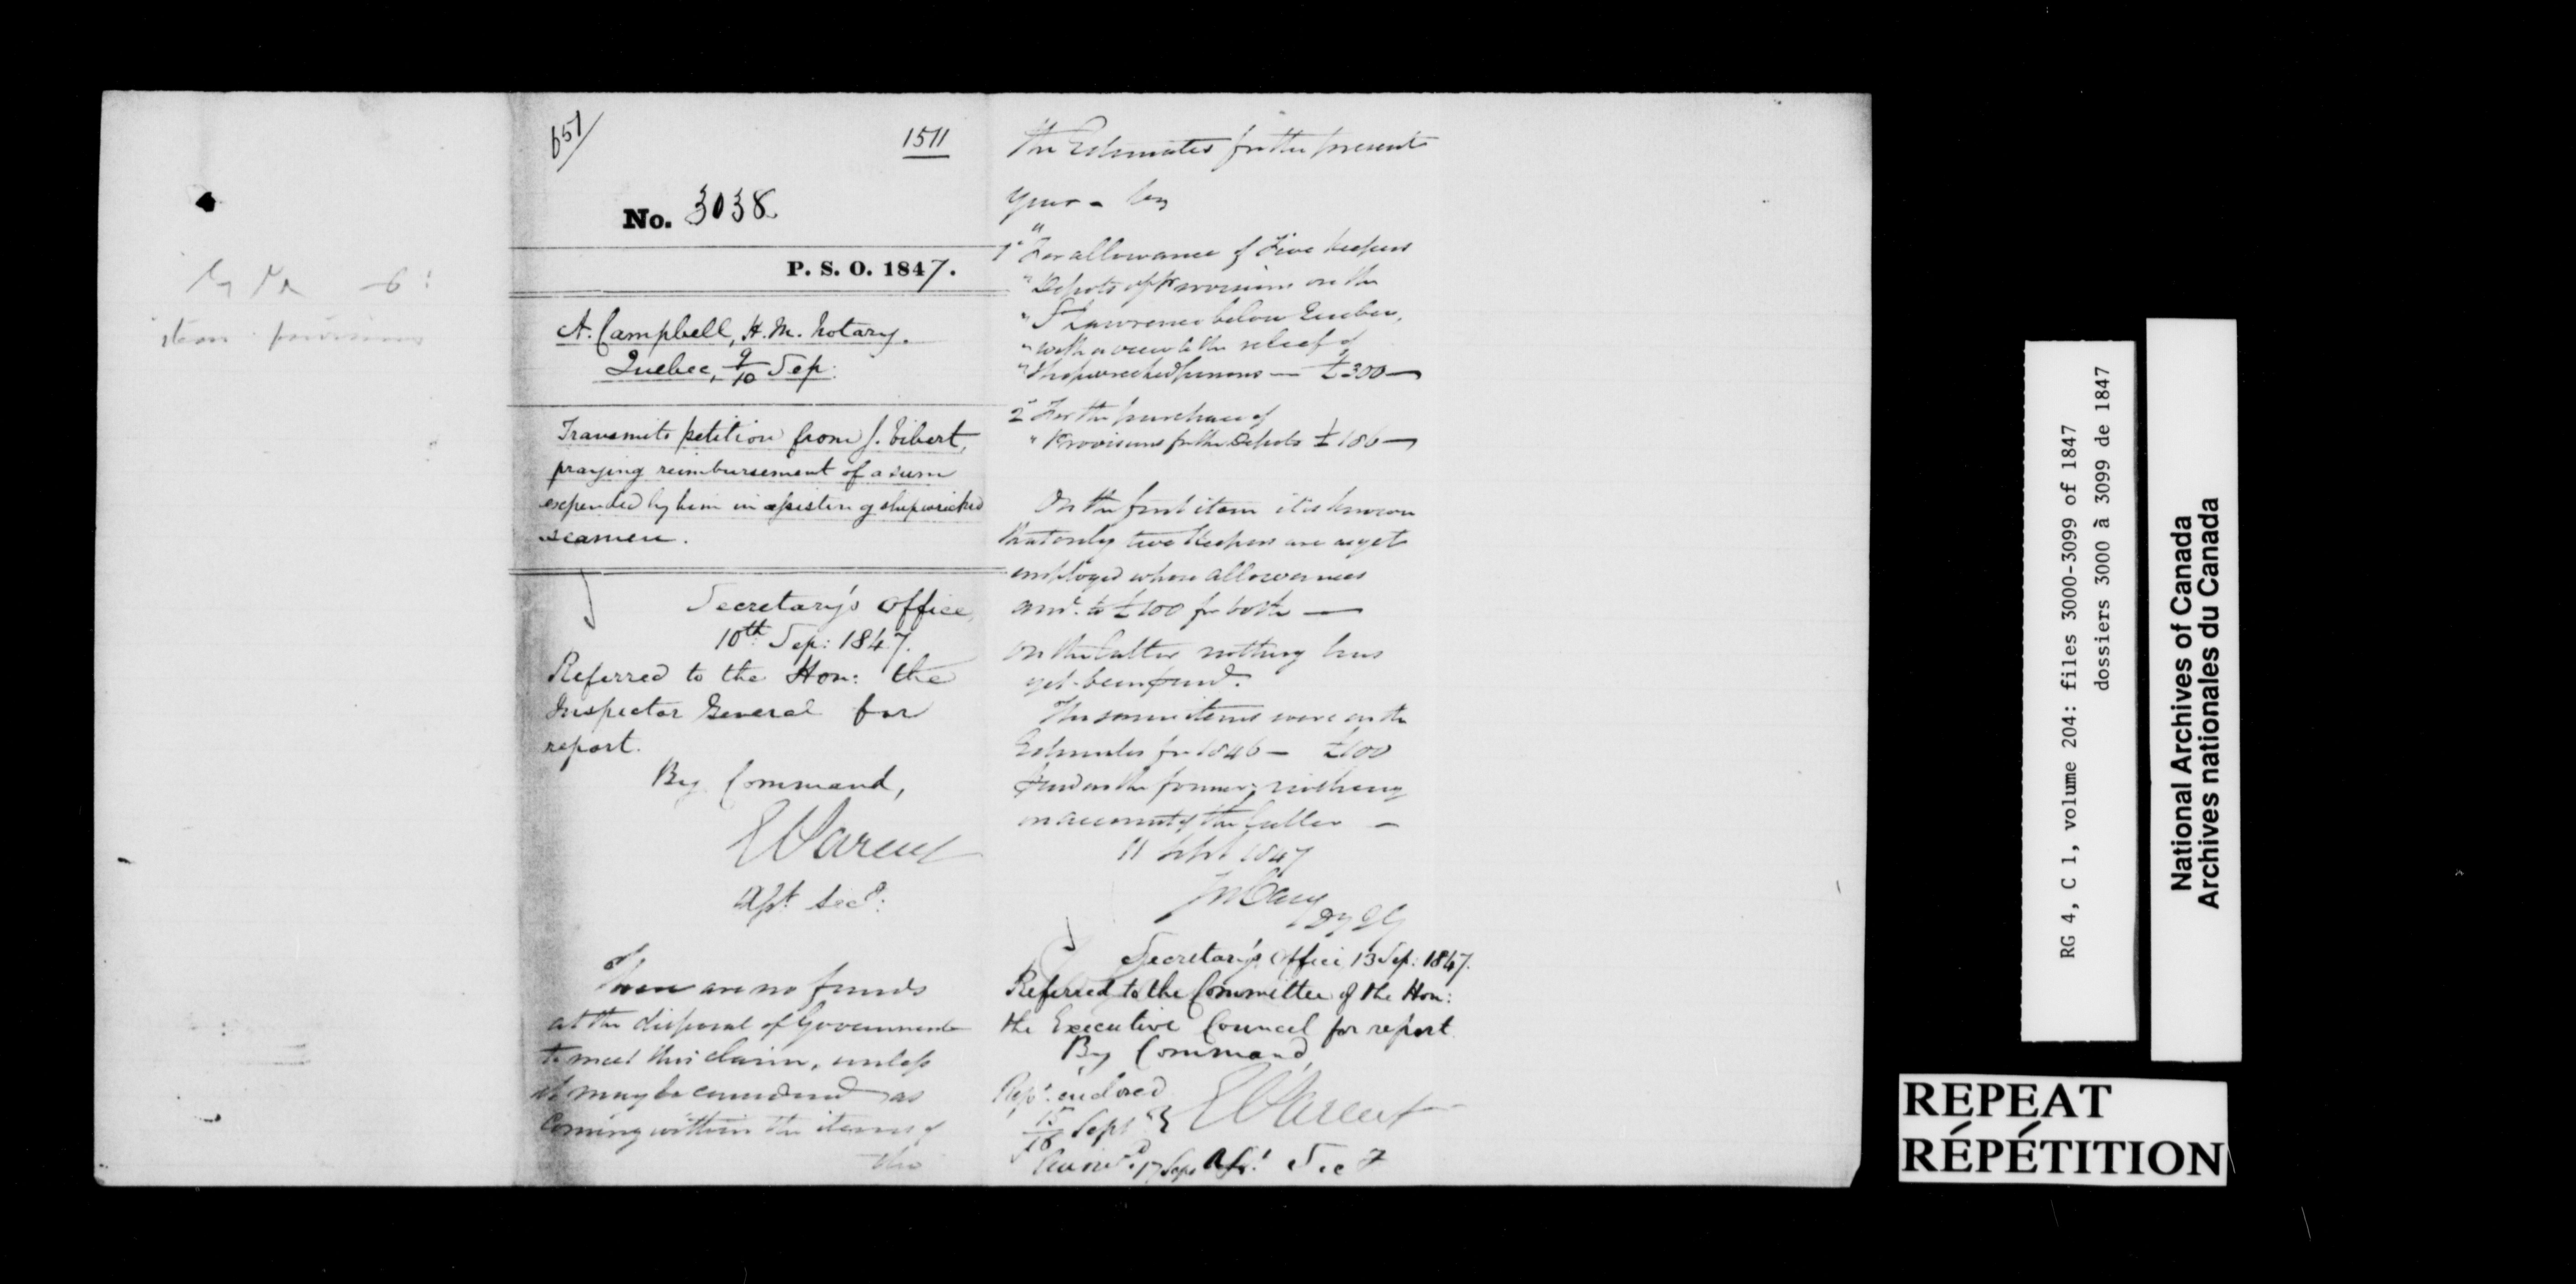 651
1511
No. 3038
P. S. O. 1847.
A. Campbell, H. M. Notary.
Quebec, 9/10 Sep:
Transmits petition from J. Eibert,
praying reimbursement of a sum
expended by him in assisting shipwrecked
seamen.
Secretary's Office,
10th Sep: 1847.
Referred to the Hon: the
Inspector General for
report.
By Command,
E Parent
Asst. Secy:
There are no funds
at the disposal of Government
to meet this claim, unless
it may be considered as
coming within the items of
the
the Estimates for the present
year -
1° "For allowance of Five keepers
" Depots of Provisions on the
" St Lawrence below Quebec,
" with a view to the relief of
" Shipwrecked persons — £300 —
2° For the purchase of
" Provisions for the Depots £186 —
On the first item it is known
that only two Keepers are as yet
employed whose allowances
amt. to £100 for both —
on the latter nothing has
yet been paid.
The same items were in the
Estimates for 1846 — £100
paid on the former, nothing
on account of the latter —
11 Sept 1847
J Cary
Dy I G
Secretary's Office 13 Sep: 1847.
Referred to the Committee of the Hon:
the Executive Council for report.
By Command,
Rept. enclosed
15/18 Sept
E Parent
17 Sep Asst. Secy
RG 4, C 1, volume 204: files 3000-3099 of 1847
dossiers 3000 à 3099 de 1847
National Archives of Canada
Archives nationales du Canada
REPEAT
RÉPÉTITION